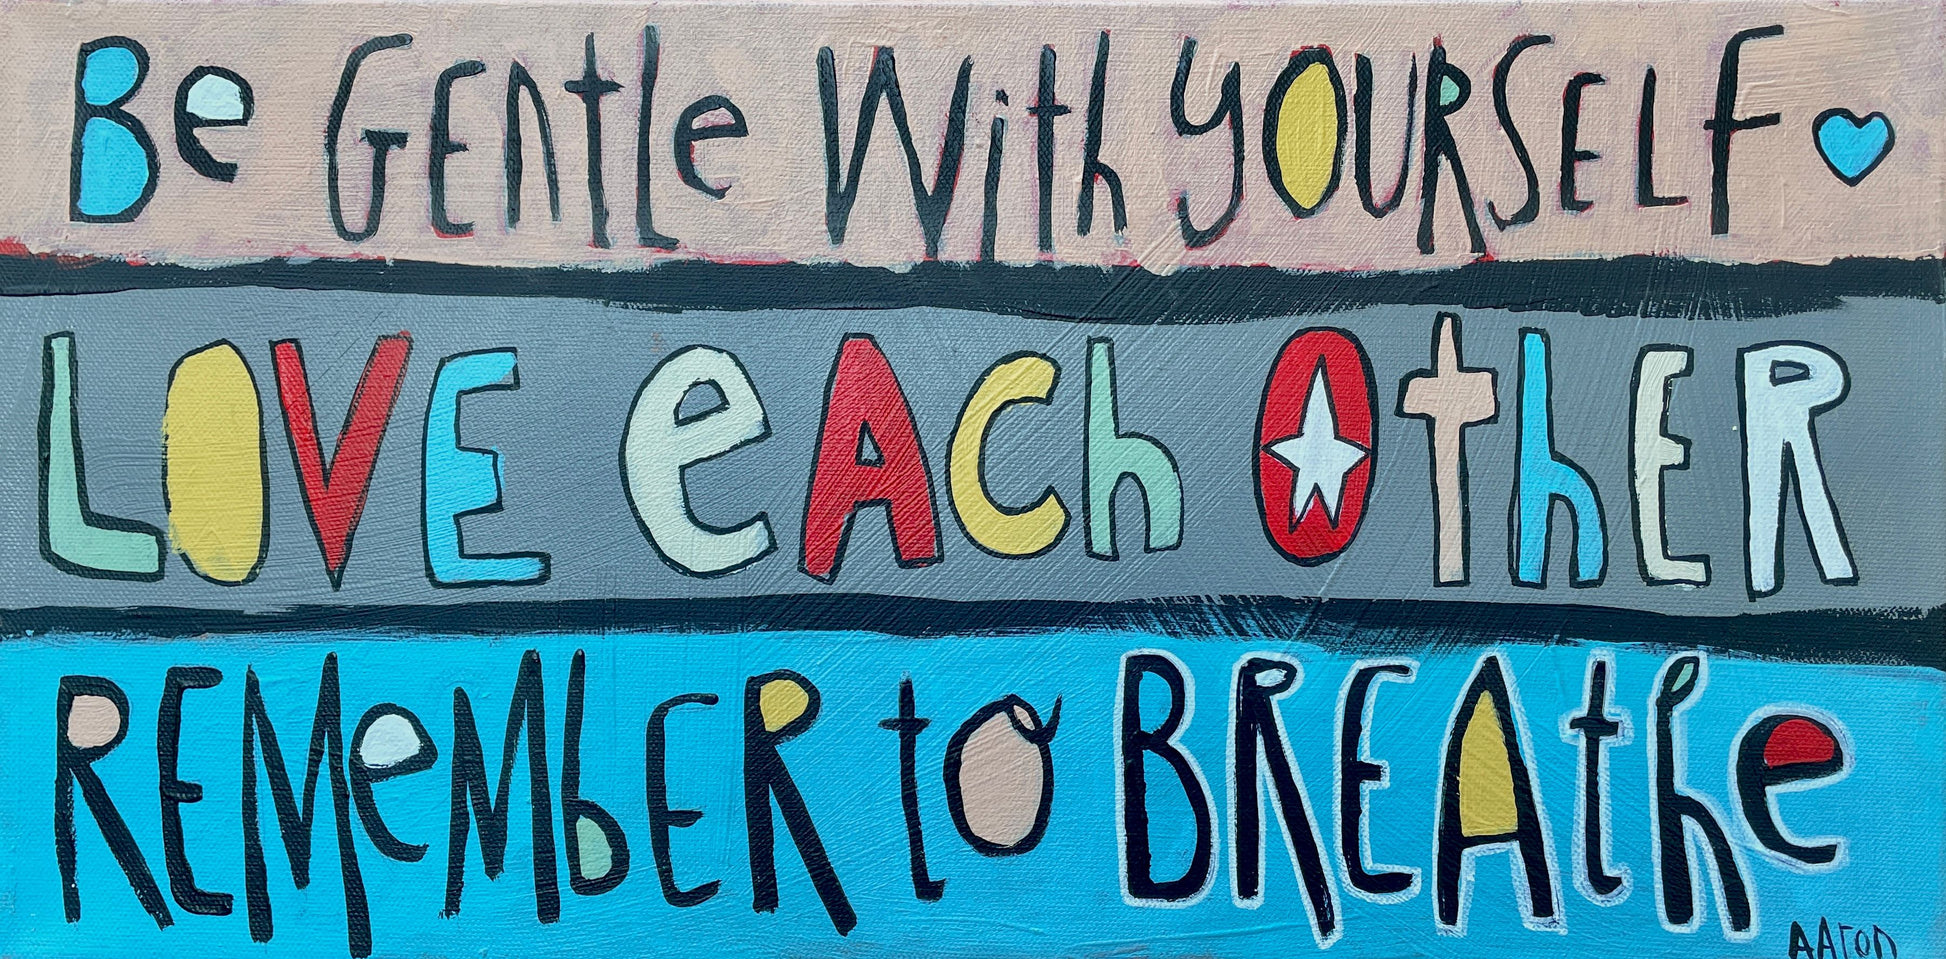 Be GEntle With YOURSELF
LOVE eACh OthER
REMeMbER to BREAthe
AAron